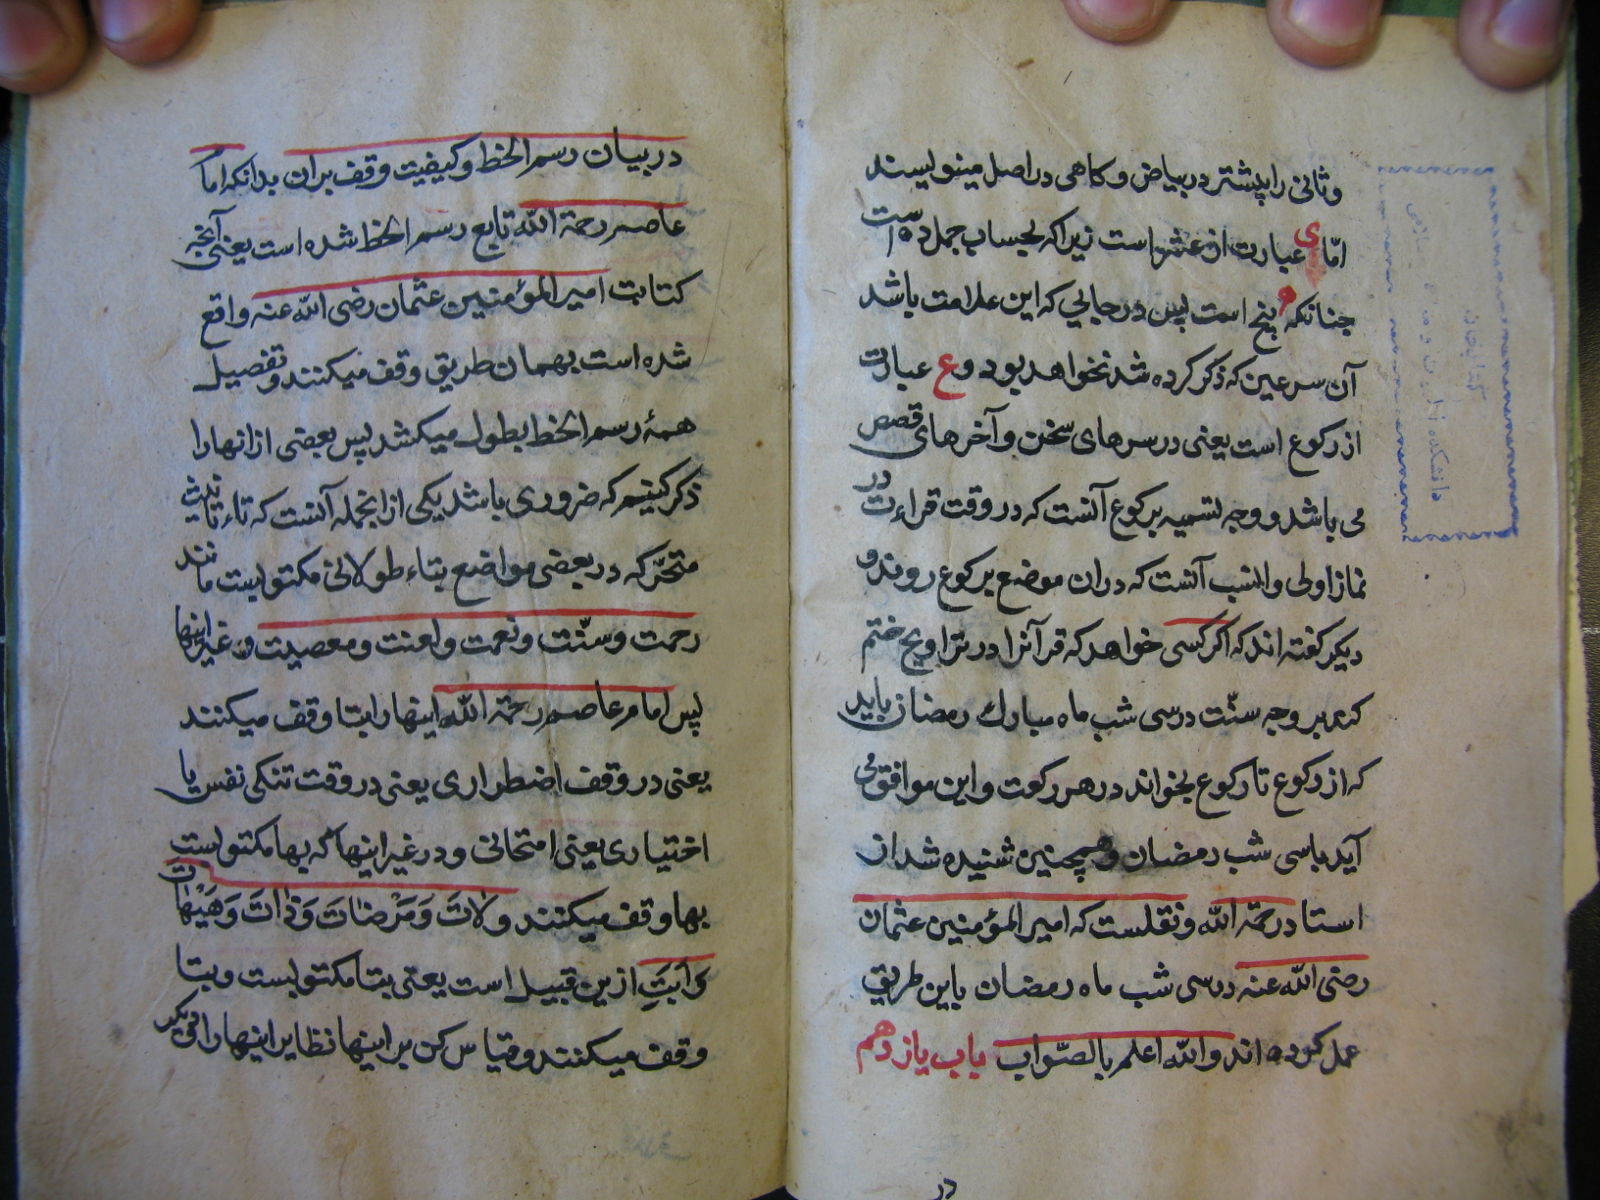 وثانی را پیشتر در بیاض و کاهی در اصل مینویسند
امّا ی عبارت از عشر است زیرا که بحساب جمل ده است
چنانکه ه پنج است پس در جایی که این علامت باشد
آن سر عین که ذکر کرده شد نخواهد بود و ع عبارت
از رکوع است یعنی در سرهای سخن و آخرهای قصص
می باشد و وجه تسمیه برکوع آنست که در وقت قراءت در
نماز اولی وانسب آنست که دران موضع برکوع روند و
دیکر کفته اند که اکر کسی خواهد که قرآنرا در تراویح ختم
کند بر وجه سنّت در سی شب ماه مبارک رمضان باید
که از رکوع تا رکوع بخواند در هر رکعت و این موافق می
آید با سی شب رمضان و همچنین شنیده شد از
استاد رحمة الله ونقلست که امیر المؤمنین عثمان
رضی الله عنه در سی شب ماه رمضان باین طریق
عمل کرده اند والله اعلم بالصّواب باب یازدهم
در
در بیان رسم الخط وکیفیت وقف بران بدانکه امام
عاصم رحمة الله تابع رسم الخط شده است یعنی آنچه
کتابت امیر المؤمنین عثمان رضی الله عنه واقع
شده است بهمان طریق وقف میکنند و تفصیل
همهٔ رسم الخط بطول میکشد پس بعضی از انها را
ذکر کنیم که ضروری باشد یکی از انجمله آنست که تاء تانیث
متحرّکه در بعضی مواضع بتاء طولانی مکتوبست مانند
رحمت وسنّت ونعمت ولعنت ومعصیت وغیر اینها
پس امام عاصم رحمة الله اینها را بتا وقف میکنند
یعنی در وقف اضطراری یعنی در وقت تنکی نفس یا
اختیاری یعنی امتحانی و در غیر اینها که بها مکتوبست
بها وقف میکنند ولاتَ وَمَرْضَاتَ وَذَاتَ وَهَیْهَاتَ
وَاَبَتِ ازین قبیل است یعنی بتا مکتوبست وبتا
وقف میکنند وقیاس کن بر اینها نظایر اینها را